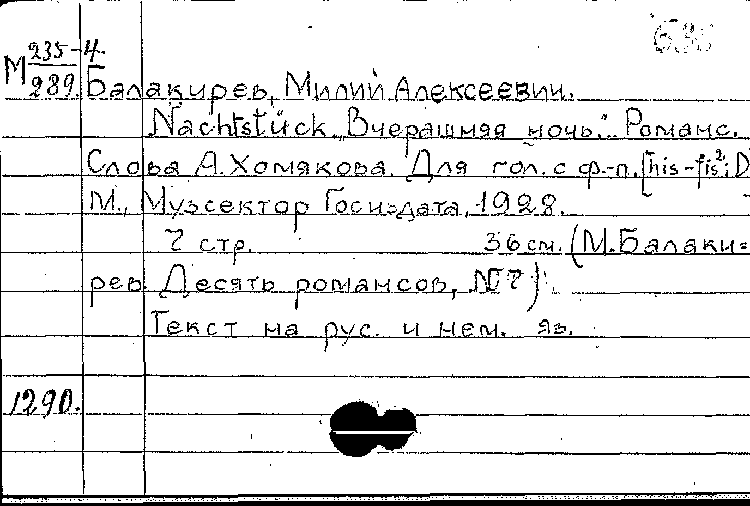 М 235-4.
289.
Балакирев, Милий Алексеевич.
Nachtstück „Вчерашняя ночь". Романс.
Слова А. Хомякова. Для гол. с ф-п. [his-fis²; D
М., Музсектор Госиздата, 1928.
7 стр. 36 см. (М. Балаки=
рев. Десять романсов, № 7).
Текст на рус. и нем. яз.
1290.